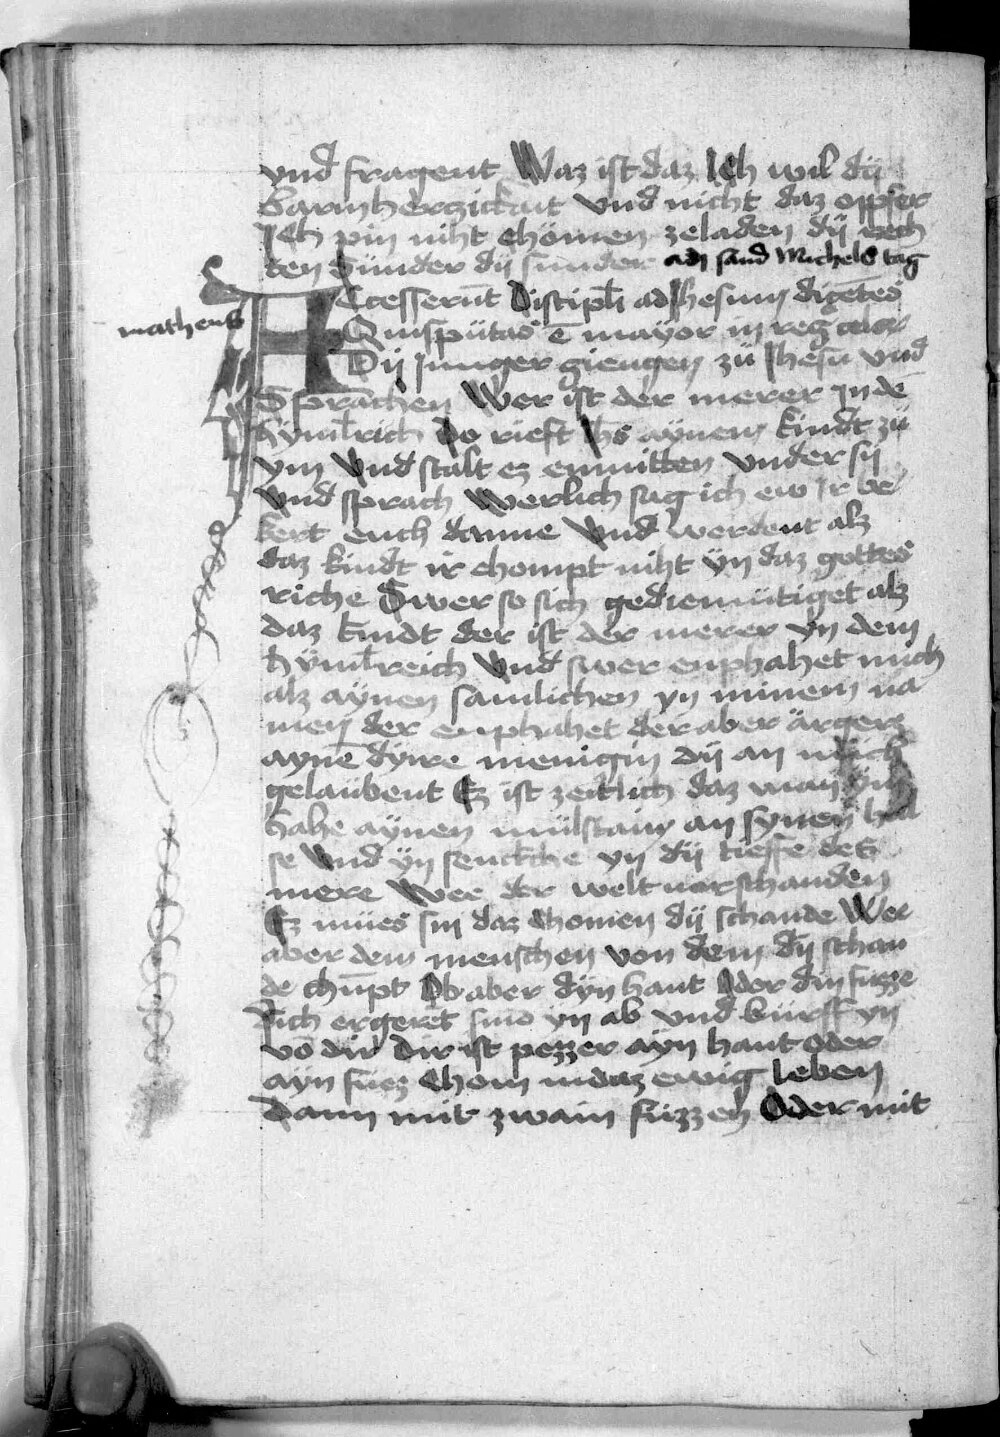 vnd fragent Waz ist daz Ich wil dy
barmherczickait vnd nicht daz opfer
Ich pin niht chömen zeladen dÿ rech
ten Sünder dÿ sunder an sand Michels tag
Accesserūt Discipli ad Ihesum dicētes
matheus
Quisputas ē mayor in reg celor
Dÿ Junger giengen zü Jhesu vnd
Sprachen Wer ist der merer In dē
hymlrich Do rieft ihs aÿnem kindt zü
ym Vnd stalt ez enmitten vnder sÿ
Vnd sprach Werlich sag ich ew Ir be
kert euch danne Vnd werdent alz
daz kindt ir chompt niht ÿn daz gottes
riche Swer so sich gediemütiget alz
daz kindt der ist der merer yn dem
hÿmlreich Vnd swer enphahet mich
alz aÿnen samlichen yn minem na
men der enphahet der aber ärgerz
aynē dyrre menigin dÿ an mich
gelaubent Ez ist zeitlich daz man ÿm
hahe aÿnen mülstain an synen hal
se Vnd ÿn senckche yn dÿ tieffe dez
mere Wee der welt vor schanden
Ez mües sin daz chomen dÿ schande Wee
aber dem menschen von dem dÿ schan
de chūpt Ob aber dÿn hant Oder din fuzze
dich ergeret snid yn ab vnd würff yn
vō dir Dir ist pezzer aÿn hant oder
aÿn fuez chom in daz ewig leben
Dann mit zwain füzzen Oder mit